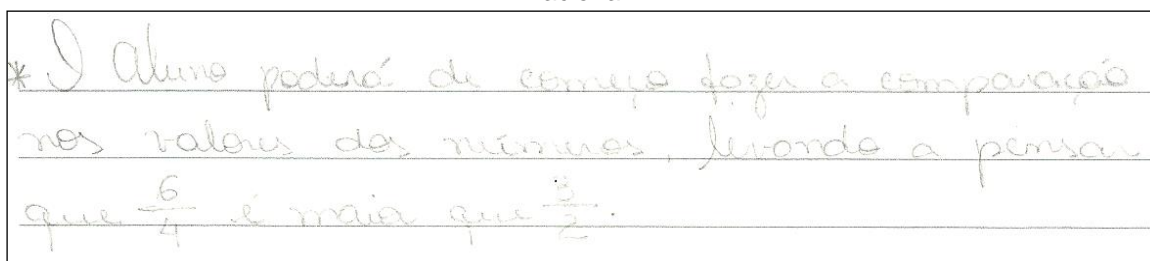 * O Aluno poderá de começo fazer a comparação
nos valores dos números, levando a pensar
que 6/4 é maior que 3/2.